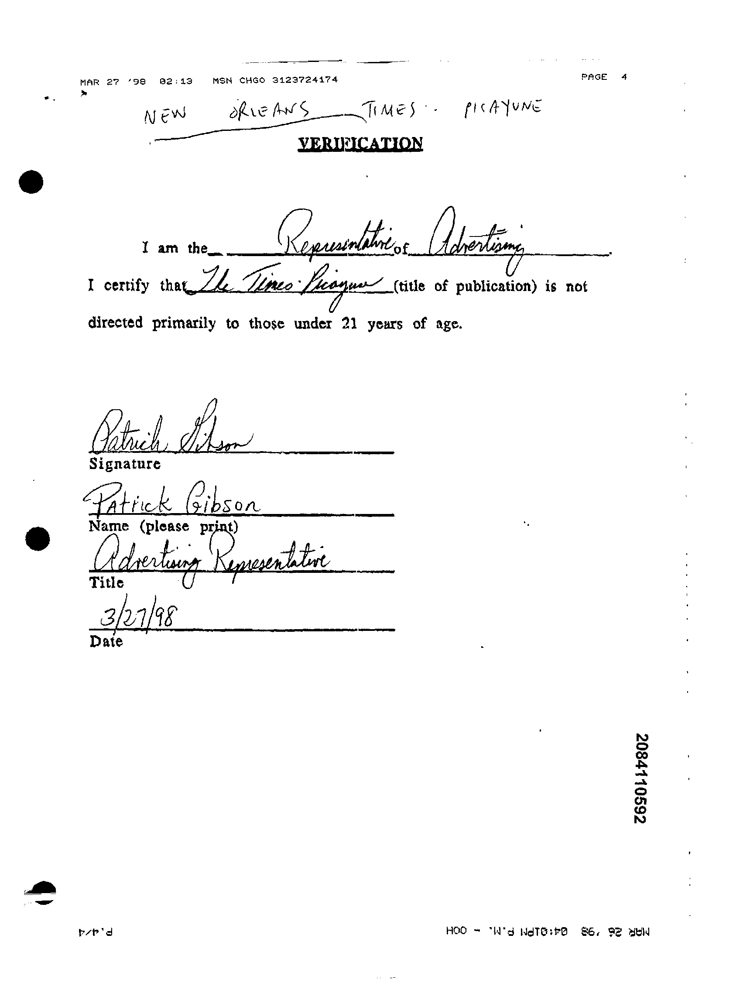 MAR 27 '98 02:13 MSN CHGO 3123724174 PAGE 4
NEW ORLEANS TIMES - PICAYUNE
VERIFICATION
I am the Representative of Advertising.
I certify that The Times-Picayune (title of publication) is not
directed primarily to those under 21 years of age.
Patrick Gibson
Signature
Patrick Gibson
Name (please print)
Advertising Representative
Title
3/27/98
Date
2084110592
MAR 26 '98 04:01PM P.M. - OOH P.4/4